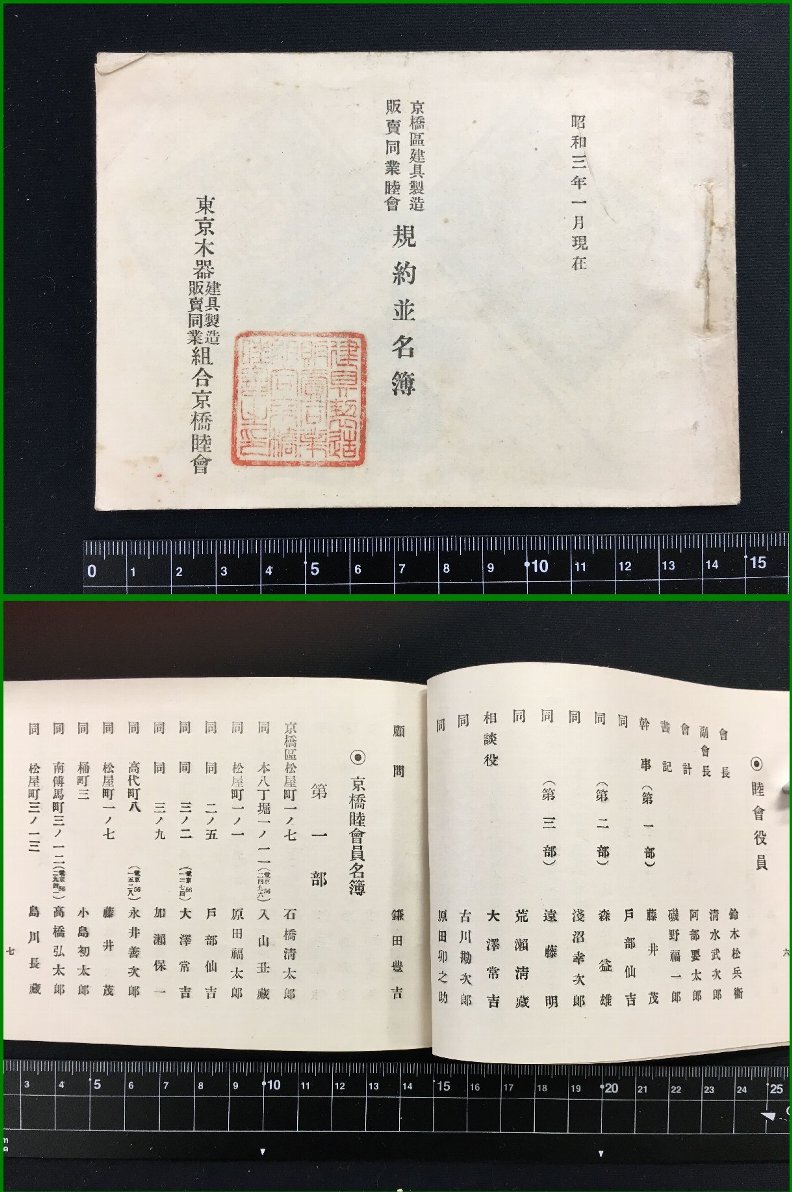 昭和三年一月現在
京橋區建具製造
販賣同業睦會
規約並名簿
東京木器建具製造販賣同業組合京橋睦會
0 1 2 3 4 5 6 7 8 9 10 11 12 13 14 15
◉睦會役員
會長 鈴木松兵衞
副會長 清水武次郎
會計 阿部要太郎
書記 磯野福一郎
幹事(第一部) 藤井茂
同 戸部仙吉
同(第二部) 森益雄
同 淺沼幸次郎
同(第三部) 遠藤明
同 荒瀨清藏
相談役 大澤常吉
同 古川勘次郎
同 原田卯之助
六
顧問 鎌田豊吉
◉京橋睦會員名簿
第一部
京橋區松屋町一ノ七 石橋清太郎
同 本八丁堀一ノ一一 入山丑藏
同 松屋町一ノ一 原田福太郎
同 同 二ノ五 戸部仙吉
同 同 三ノ二 大澤常吉
同 同 三ノ九 加瀨保一
同 高代町八 永井善次郎
同 松屋町一ノ七 藤井茂
同 桶町三 小島初太郎
同 南傳馬町三ノ一二 高橋弘太郎
同 松屋町三ノ一三 島川長藏
七
3 4 5 6 7 8 9 10 11 12 13 14 15 16 17 18 19 20 21 22 23 24 25